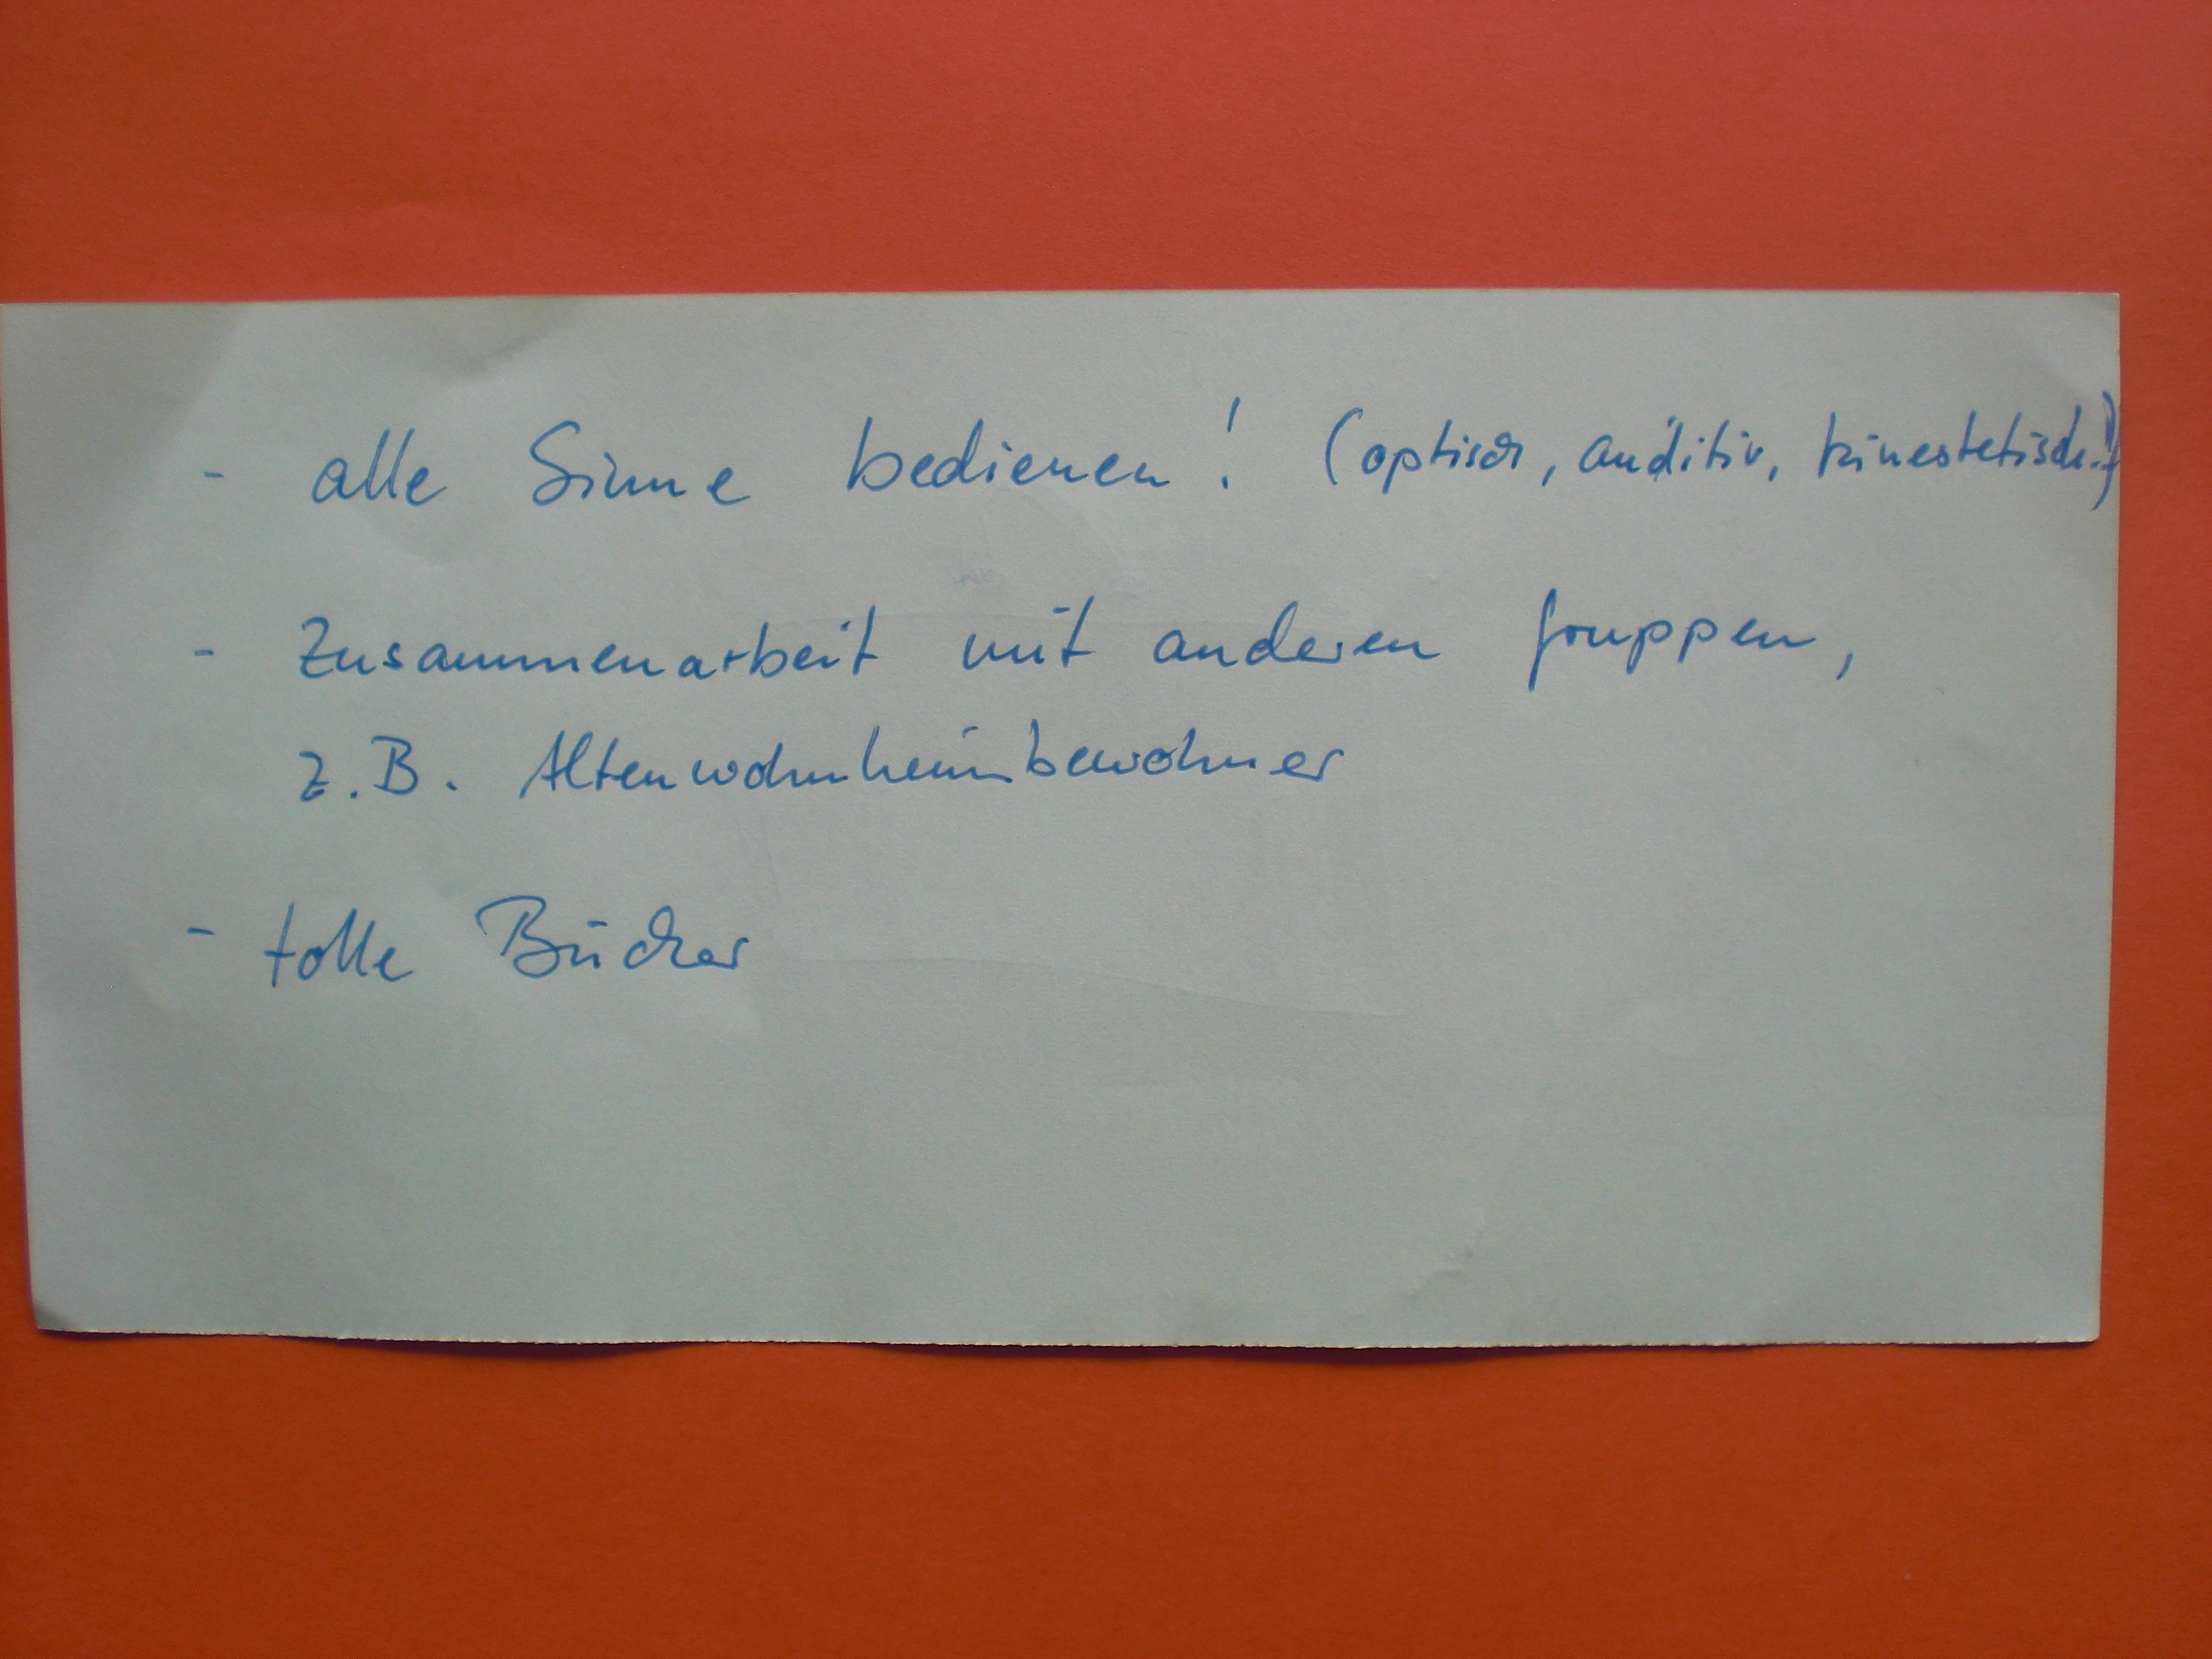 - alle Sinne bedienen! (optisch, auditiv, kinestetisch!)
- Zusammenarbeit mit anderen Gruppen,
z.B. Altenwohnheimbewohner
- tolle Bücher